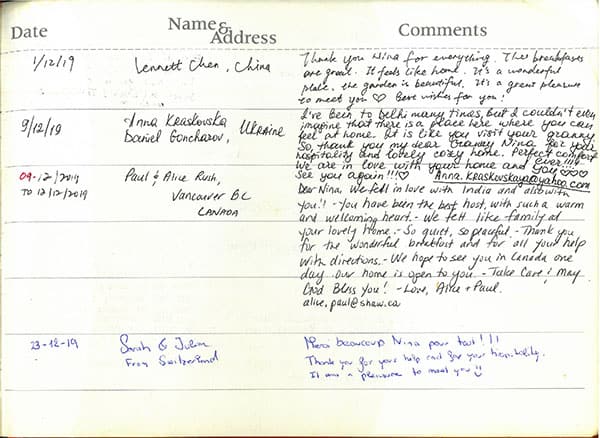 Date
Name &
Address
Comments
1/12/19
Lennett Chen, China
Thank you Nina for everything. The breakfasts
are great. It feels like home. It's a wonderful
place. the garden is beautiful. It's a great pleasure
to meet you ♡ Best wishes for you!
9/12/19
Anna Kraskovska
Daniel Goncharov, UKRAINE
I've been to Delhi many times, but I couldn't even
imagine that there is a place here where you can
feel at home. It is like you visit your granny.
So, thank you my dear Granny Nina for your
hospitality and lovely cozy home. Perfect comfort
We are in love with your home and you ever!!!!
See you again!!! ♡ ♡♡♡
Anna.Kraskovskaya@yahoo.com
09-12/2019
TO 12/12/2019
Paul & Alice Rush,
Vancouver BC
CANADA
Dear Nina, We fell in love with India and also with
you!! - You have been the best host, with such a warm
and welcoming heart. - We felt like family at
your lovely home. - So quiet, so peaceful. - Thank you
for the wonderful breakfast and for all your help
with directions. - We hope to see you in Canada one
day. Our home is open to you. - Take Care & may
God Bless You! - Love, Alice + Paul.
alice.paul@shaw.ca
23-12-19
Sarah & Julien
From Switzerland
Merci beaucoup Nina pour tout!!!
Thank you for your help and for your hospitality.
It was a pleasure to meet you